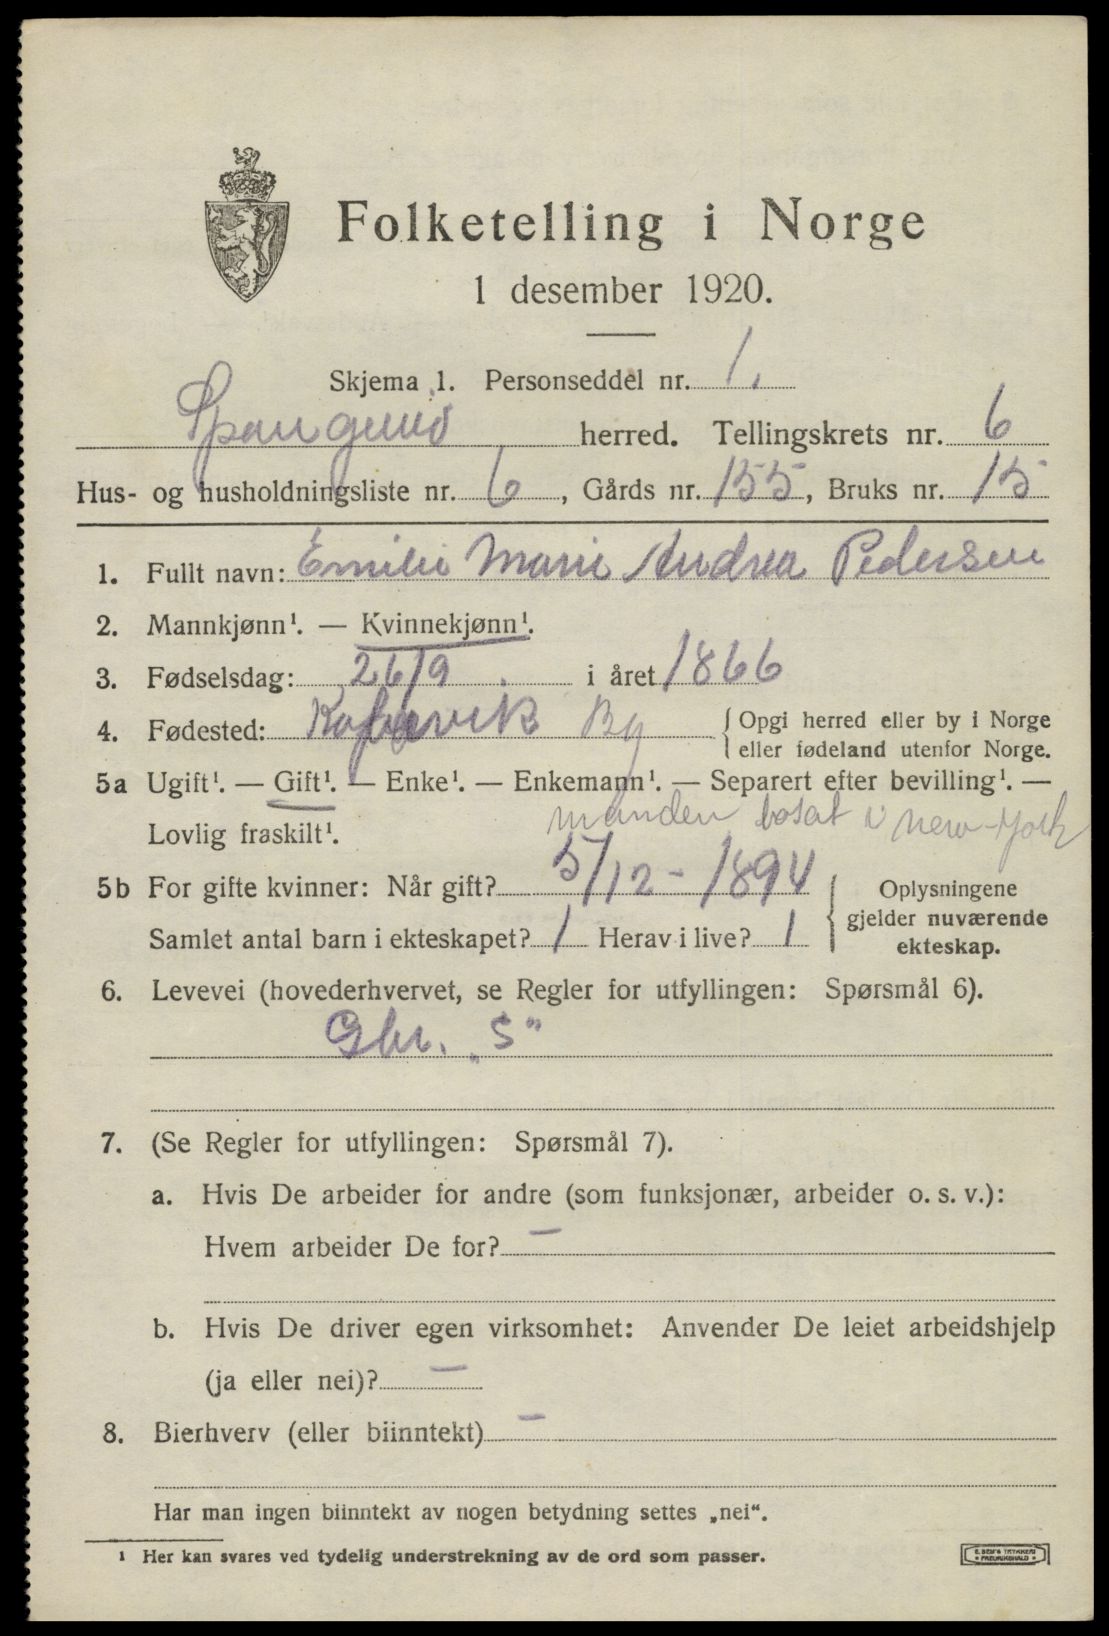 Folketelling i Norge
1 desember 1920.
Skjema 1. Personseddel nr. 1.
herred. Tellingskrets nr. 6
Hus- og husholdningsliste nr. 6, Gårds nr. 155, Bruks nr. 15
1. Fullt navn: Emilie Marie Andrea Pedersen
2. Mannkjønn¹. — Kvinnekjønn¹.
3. Fødselsdag: 26/9 i året 1866
4. Fødested: By { Opgi herred eller by i Norge
eller fødeland utenfor Norge.
5a Ugift¹. — Gift¹. — Enke¹. — Enkemann¹. — Separert efter bevilling¹. —
Lovlig fraskilt¹. manden bosat i New-York
5b For gifte kvinner: Når gift? 5/12-1894
Samlet antal barn i ekteskapet? 1 Herav i live? 1
{ Oplysningene
gjelder nuværende
ekteskap.
6. Levevei (hovederhvervet, se Regler for utfyllingen: Spørsmål 6).
Gbr. „S"
7. (Se Regler for utfyllingen: Spørsmål 7).
a. Hvis De arbeider for andre (som funksjonær, arbeider o. s. v.):
Hvem arbeider De for? —
b. Hvis De driver egen virksomhet: Anvender De leiet arbeidshjelp
(ja eller nei)? —
8. Bierhverv (eller biinntekt) —
Har man ingen biinntekt av nogen betydning settes „nei“.
¹ Her kan svares ved tydelig understrekning av de ord som passer.